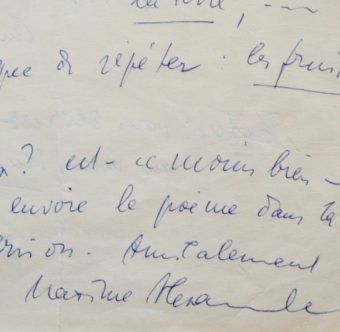 la terre, —
de répéter : les fruit
? est-ce moins bien —
envoie le poème dans ta
Amicalement
Maxime Alexandre